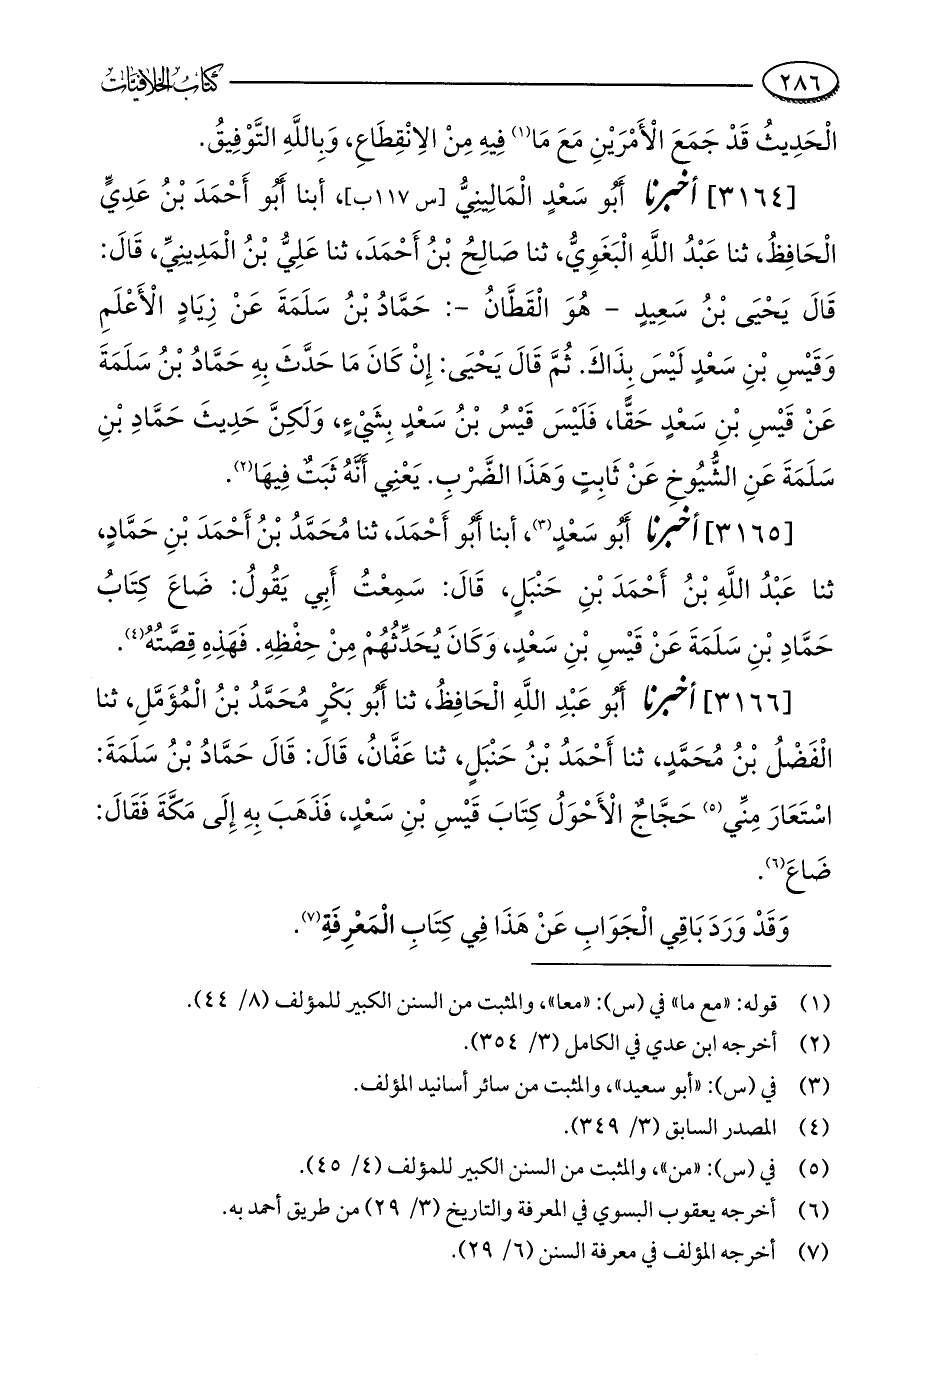 ٢٨٦ كتاب الخلافيات
الْحَدِيثُ قَدْ جَمَعَ الْأَمْرَيْنِ مَعَ مَا(١) فِيهِ مِنْ الِانْقِطَاعِ، وَبِاللَّهِ التَّوْفِيقُ.
[٣١٦٤] أخبرنا أَبُو سَعْدٍ الْمَالِينِيُّ [س ١١٧ب]، أبنا أَبُو أَحْمَدَ بْنُ عَدِيٍّ
الْحَافِظُ، ثنا عَبْدُ اللَّهِ الْبَغَوِيُّ، ثنا صَالِحُ بْنُ أَحْمَدَ، ثنا عَلِيُّ بْنُ الْمَدِينِيِّ، قَالَ:
قَالَ يَحْيَى بْنُ سَعِيدٍ - هُوَ الْقَطَّانُ -: حَمَّادُ بْنُ سَلَمَةَ عَنْ زِيَادٍ الْأَعْلَمِ
وَقَيْسِ بْنِ سَعْدٍ لَيْسَ بِذَاكَ. ثُمَّ قَالَ يَحْيَى: إِنْ كَانَ مَا حَدَّثَ بِهِ حَمَّادُ بْنُ سَلَمَةَ
عَنْ قَيْسِ بْنِ سَعْدٍ حَقًّا، فَلَيْسَ قَيْسُ بْنُ سَعْدٍ بِشَيْءٍ، وَلَكِنَّ حَدِيثَ حَمَّادِ بْنِ
سَلَمَةَ عَنِ الشُّيُوخِ عَنْ ثَابِتٍ وَهَذَا الضَّرْبِ. يَعْنِي أَنَّهُ ثَبَتٌ فِيهَا(٢).
[٣١٦٥] أخبرنا أَبُو سَعْدٍ(٣)، أبنا أَبُو أَحْمَدَ، ثنا مُحَمَّدُ بْنُ أَحْمَدَ بْنِ حَمَّادٍ،
ثنا عَبْدُ اللَّهِ بْنُ أَحْمَدَ بْنِ حَنْبَلٍ، قَالَ: سَمِعْتُ أَبِي يَقُولُ: ضَاعَ كِتَابُ
حَمَّادِ بْنِ سَلَمَةَ عَنْ قَيْسِ بْنِ سَعْدٍ، وَكَانَ يُحَدِّثُهُمْ مِنْ حِفْظِهِ. فَهَذِهِ قِصَّتُهُ(٤).
[٣١٦٦] أخبرنا أَبُو عَبْدِ اللَّهِ الْحَافِظُ، ثنا أَبُو بَكْرٍ مُحَمَّدُ بْنُ الْمُؤَمَّلِ، ثنا
الْفَضْلُ بْنُ مُحَمَّدٍ، ثنا أَحْمَدُ بْنُ حَنْبَلٍ، ثنا عَفَّانُ، قَالَ: قَالَ حَمَّادُ بْنُ سَلَمَةَ:
اسْتَعَارَ مِنِّي(٥) حَجَّاجٌ الْأَحْوَلُ كِتَابَ قَيْسِ بْنِ سَعْدٍ، فَذَهَبَ بِهِ إِلَى مَكَّةَ فَقَالَ:
ضَاعَ(٦).
وَقَدْ وَرَدَ بَاقِي الْجَوَابِ عَنْ هَذَا فِي كِتَابِ الْمَعْرِفَةِ(٧).
(١) قوله: «مع ما» في (س): «معا»، والمثبت من السنن الكبير للمؤلف (٨/ ٤٤).
(٢) أخرجه ابن عدي في الكامل (٣/ ٣٥٤).
(٣) في (س): «أبو سعيد»، والمثبت من سائر أسانيد المؤلف.
(٤) المصدر السابق (٣/ ٣٤٩).
(٥) في (س): «من»، والمثبت من السنن الكبير للمؤلف (٤/ ٤٥).
(٦) أخرجه يعقوب البسوي في المعرفة والتاريخ (٣/ ٢٩) من طريق أحمد به.
(٧) أخرجه المؤلف في معرفة السنن (٦/ ٢٩).